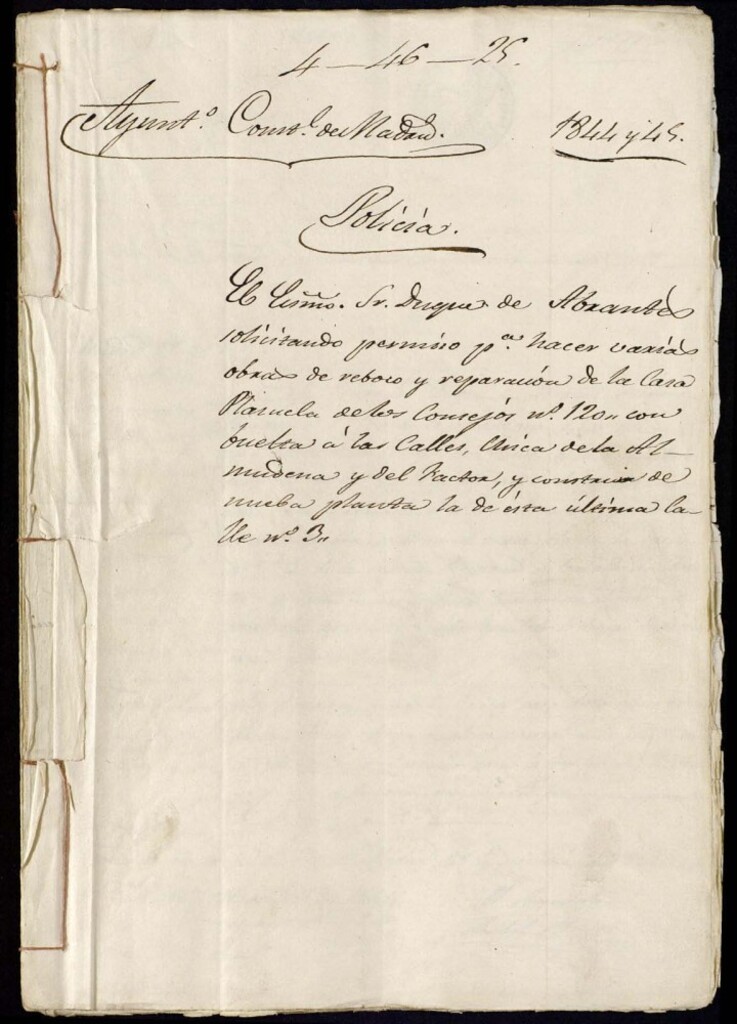 4-46-25.
Ayunt.º Const.l de Madrid. 1844 y 45.
Policía.
El Exmo. Sr. Duque de Abrantes
solicitando permiso p.a hacer varias
obras de reboco y reparación de la Casa
Plazuela de los Consejos nº. 120,, con
buelta á las Calles, Chica de la Al-
mudena y del Factor, y construir de
nueba planta la de ésta última Ca-
lle nº. 3,,